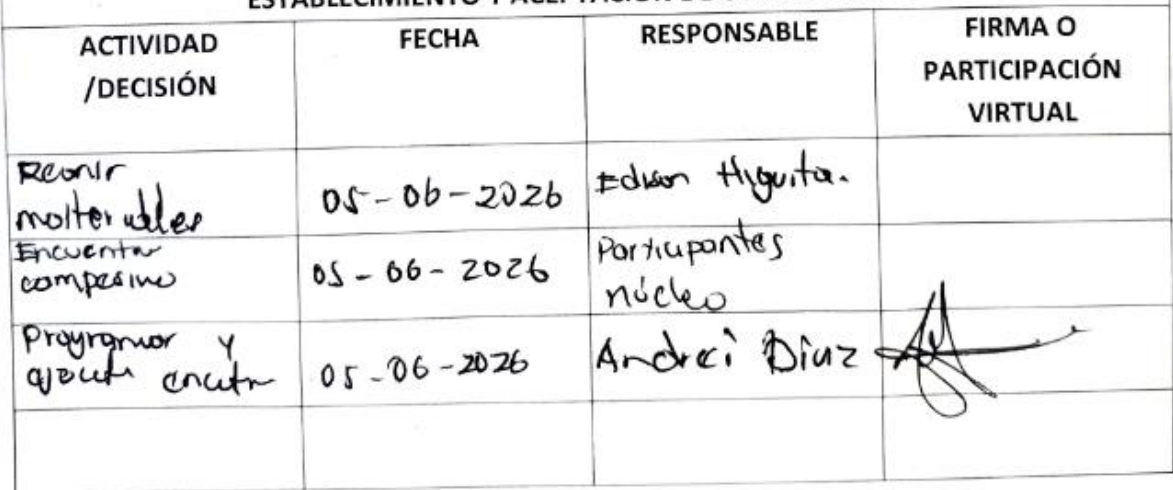 ESTABLECIMIENTO Y ACEPTACIÓN DE
ACTIVIDAD
/DECISIÓN
FECHA
RESPONSABLE
FIRMA O
PARTICIPACIÓN
VIRTUAL
Reunir
05-06-2026
Edison Higuita.
Encuentro
campesino
05-06-2026
Participantes
núcleo
Programar y
05-06-2026
Andrei Diaz